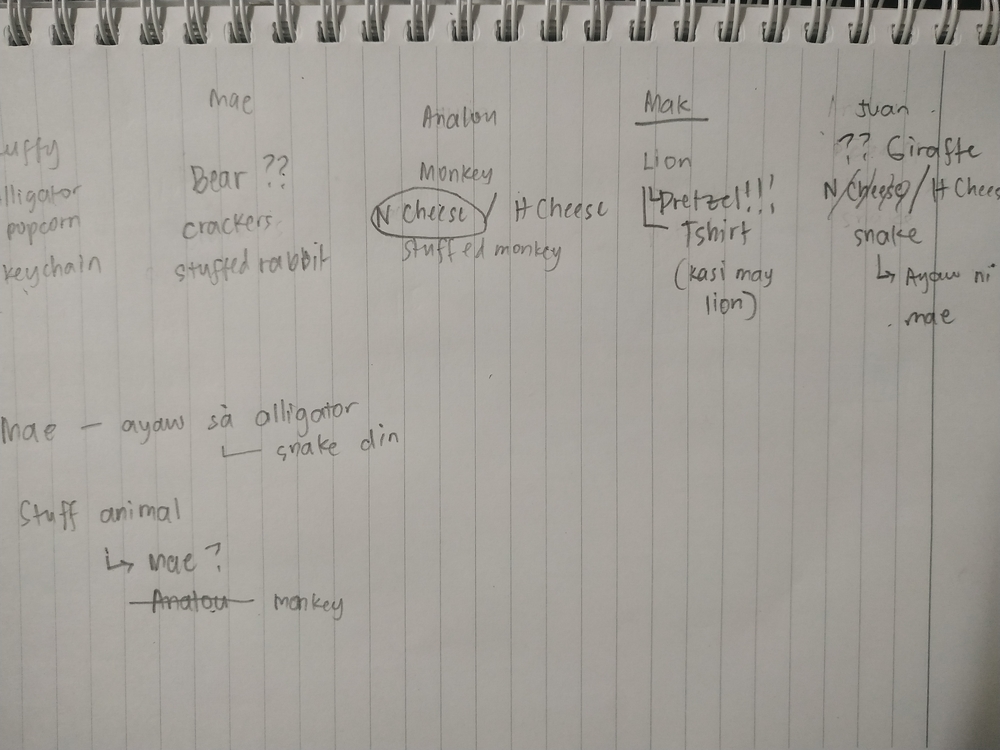 uffy
lligator
popcorn
keychain
Mae
Bear ??
crackers
stuffed rabbit
Analou
Monkey
N Cheese / H Cheese
Stuffed monkey
Mak
Lion
Pretzel!!!
Tshirt
(kasi may
lion)
Juan
?? Giraffe
N/Cheese / H Chees
snake
Ayaw ni
mae
Mae – ayaw sa alligator
snake din
Stuff animal
mae ?
Analou monkey